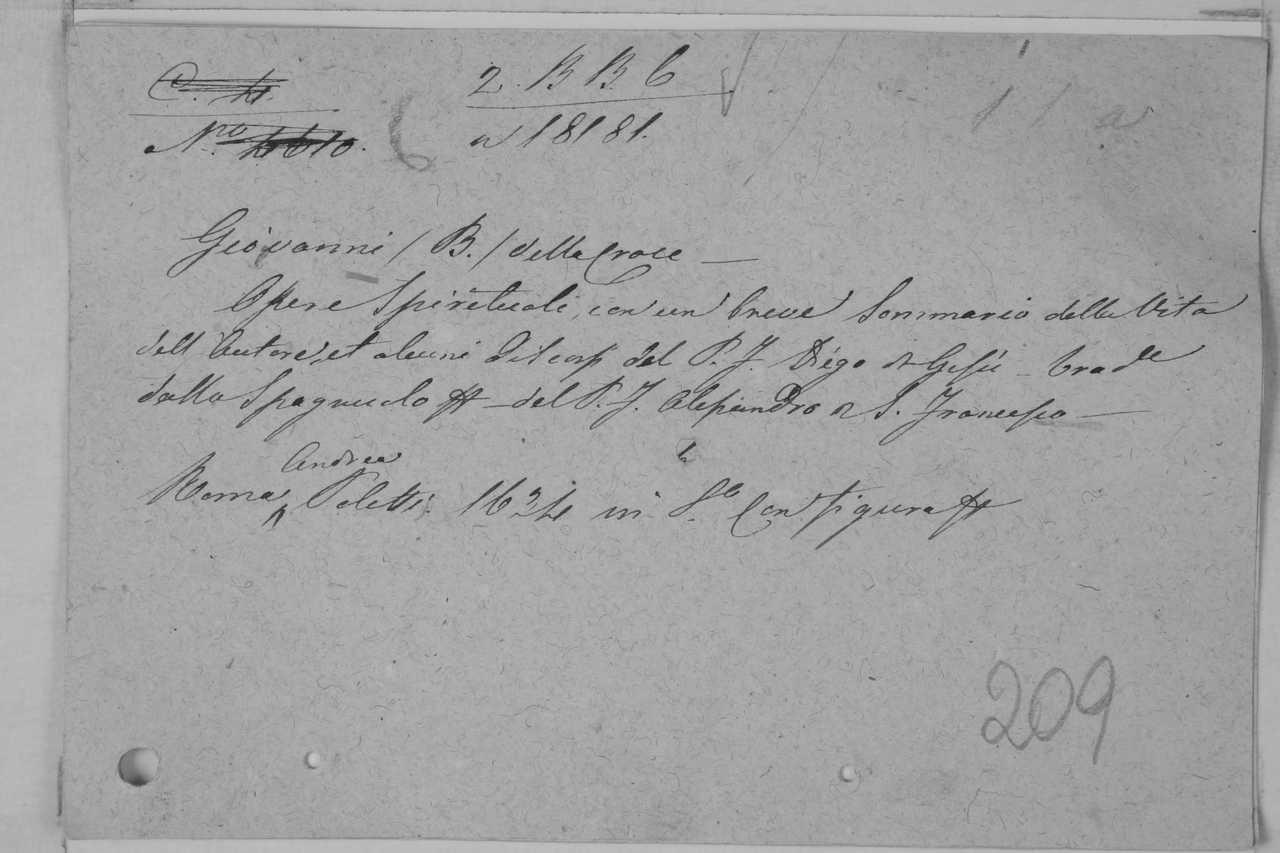 C. 4.
2. B B. 6
N.ro 4610.
a 18181.
Giovanni / B. / della Croce —
Opere Spirituali, con un breve Sommario della Vita
dell'Autore, et alcuni Discorsi del P. F. Diego di Gesù – trad.e
dallo Spagnuolo — del P. F. Alessandro di S. Francesco —
Andrea
Roma, Poletti. 1624 in 8.o con figura
209